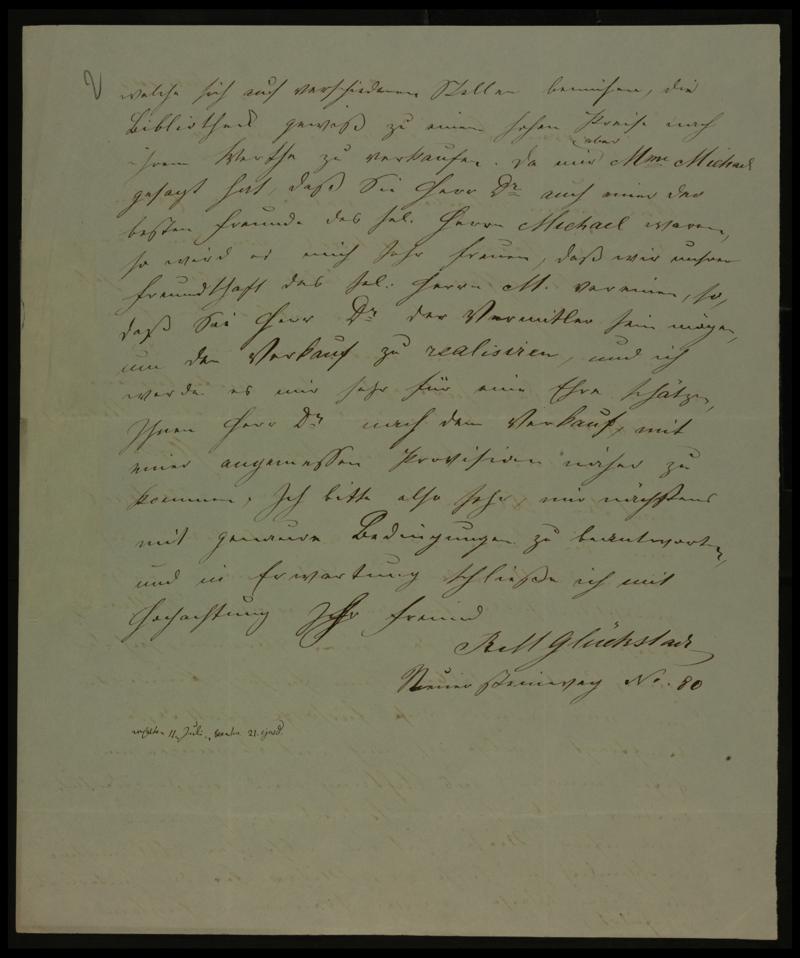 welche sich auf verschiedenen Stellen bemühen, die
Bibliothek gewiß zu einen hohen Preise nach
ihrem Werthe zu verkaufen. Da mir aber Mme Michael
gesagt hat, daß Sie Herr Dr auch einer der
besten Freunde des sel. Herrn Michael waren,
so wird es mich sehr freuen, daß wir unsere
Freundthaft des sel. Herrn M. vereinen, so,
daß Sie Herr Dr der Vermitler sein mögen,
um den Verkauf zu realisiren, und ich
werde es mir sehr für eine Ehre schätzen,
Ihnen Herr Dr nach dem Verkauf, mit
einer angemessen Provision näher zu
kommen. Ich bitte also sehr, mir nächstens
mit genauen Bedingungen zu beantworten,
und in Erwartung schließe ich mit
Hochachtung Ihr Freund
Glückstadt
Neuer Steinweg No. 80
erhalten 11 Juli, beantw. 21. ejusd.